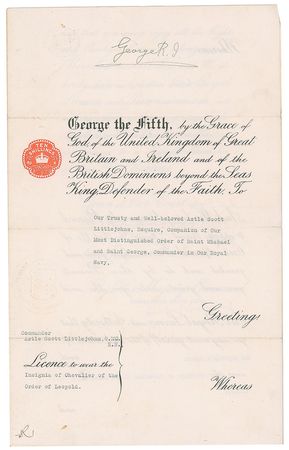 George R.I
George the Fifth, by the Grace of
God, of the United Kingdom of Great
Britain and Ireland and of the
British Dominions beyond the Seas
King, Defender of the Faith, To
TEN
SHILLINGS
Our Trusty and Well-beloved Astle Scott
Littlejohns, Esquire, Companion of Our
Most Distinguished Order of Saint Michael
and Saint George, Commander in Our Royal
Navy.
Greeting
Commander
Astle Scott Littlejohns, C.MG.
R.N.
Licence to wear the
Insignia of Chevalier of the
Order of Leopold.
Whereas
R